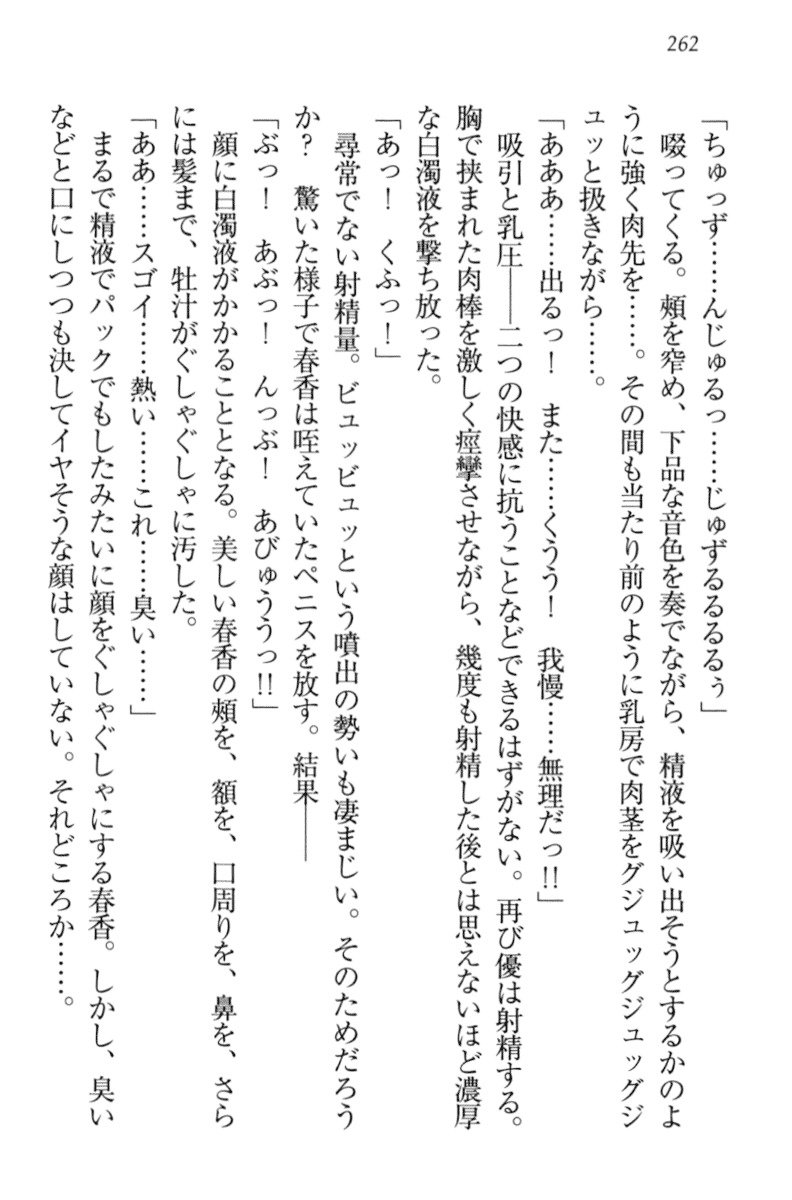 262
「ちゅっず……んじゅるっ……じゅずるるるるぅ」
　啜ってくる。頰を窄め、下品な音色を奏でながら、精液を吸い出そうとするかのよ
うに強く肉先を……。その間も当たり前のように乳房で肉茎をグジュッグジュッグジ
ュッと扱きながら……。
「あああ……出るっ！　また……くうう！　我慢……無理だっ!!」
　吸引と乳圧――二つの快感に抗うことなどできるはずがない。再び優は射精する。
胸で挟まれた肉棒を激しく痙攣させながら、幾度も射精した後とは思えないほど濃厚
な白濁液を撃ち放った。
「あっ！　くふっ！」
　尋常でない射精量。ビュッビュッという噴出の勢いも凄まじい。そのためだろう
か？　驚いた様子で春香は咥えていたペニスを放す。結果――
「ぶっ！　あぶっ！　んっぶ！　あびゅううっ!!」
　顔に白濁液がかかることとなる。美しい春香の頰を、額を、口周りを、鼻を、さら
には髪まで、牡汁がぐしゃぐしゃに汚した。
「ああ……スゴイ……熱い……これ……臭い……」
　まるで精液でパックでもしたみたいに顔をぐしゃぐしゃにする春香。しかし、臭い
などと口にしつつも決してイヤそうな顔はしていない。それどころか……。